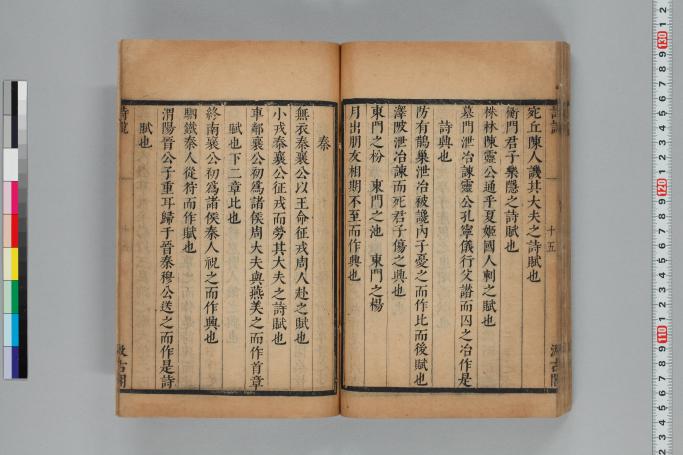 宛丘陳人譏其大夫之詩賦也
衡門君子樂隱之詩賦也
株林陳靈公通乎夏姬國人刺之賦也
墓門泄冶諫靈公孔寧儀行父譖而囚之冶作是
詩興也
防有鵲巢泄冶被讒內子憂之而作比而後賦也
澤陂泄冶諫而死君子傷之興也
東門之枌 東門之池 東門之楊
月出朋友相期不至而作興也
十五
秦
無衣秦襄公以王命征戎周人赴之賦也
小戎秦襄公征戎而勞其大夫之詩賦也
車鄰襄公初為諸侯周大夫與燕美之而作首章
賦也下二章比也
終南襄公初為諸侯秦人祝之而作興也
駟鐵秦人從狩而作賦也
渭陽晉公子重耳歸于晉秦穆公送之而作是詩
賦也
汲古閣
130
120
110